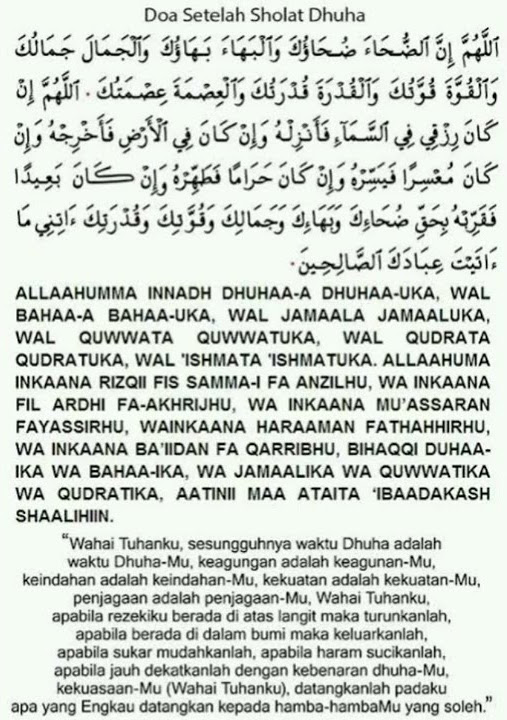 Doa Setelah Sholat Dhuha
اَللَّهُمَّ إِنَّ الضُّحَاءَ ضُحَاؤُكَ وَالْبَهَاءَ بَهَاؤُكَ وَالْجَمَالَ جَمَالُكَ
وَالْقُوَّةَ قُوَّتُكَ وَالْقُدْرَةَ قُدْرَتُكَ وَالْعِصْمَةَ عِصْمَتُكَ . اَللَّهُمَّ إِنْ
كَانَ رِزْقِي فِي السَّمَاءِ فَأَنْزِلْهُ وَإِنْ كَانَ فِي الْأَرْضِ فَأَخْرِجْهُ وَإِنْ
كَانَ مُعْسِرًا فَيَسِّرْهُ وَإِنْ كَانَ حَرَامًا فَطَهِّرْهُ وَإِنْ كَانَ بَعِيدًا
فَقَرِّبْهُ بِحَقِّ ضُحَاءِكَ وَبَهَاءِكَ وَجَمَالِكَ وَقُوَّتِكَ وَقُدْرَتِكَ ءَاتِنِي مَا
ءَاتَيْتَ عِبَادَكَ الصَّالِحِينَ.
ALLAAHUMMA INNADH DHUHAA-A DHUHAA-UKA, WAL
BAHAA-A BAHAA-UKA, WAL JAMAALA JAMAALUKA,
WAL QUWWATA QUWWATUKA, WAL QUDRATA
QUDRATUKA, WAL 'ISHMATA 'ISHMATUKA. ALLAAHUMA
INKAANA RIZQII FIS SAMMA-I FA ANZILHU, WA INKAANA
FIL ARDHI FA-AKHRIJHU, WA INKAANA MU'ASSARAN
FAYASSIRHU, WAINKAANA HARAAMAN FATHAHHIRHU,
WA INKAANA BA'IIDAN FA QARRIBHU, BIHAQQI DUHAA-
IKA WA BAHAA-IKA, WA JAMAALIKA WA QUWWATIKA
WA QUDRATIKA, AATINII MAA ATAITA 'IBAADAKASH
SHAALIHIIN.
“Wahai Tuhanku, sesungguhnya waktu Dhuha adalah
waktu Dhuha-Mu, keagungan adalah keagunan-Mu,
keindahan adalah keindahan-Mu, kekuatan adalah kekuatan-Mu,
penjagaan adalah penjagaan-Mu, Wahai Tuhanku,
apabila rezekiku berada di atas langit maka turunkanlah,
apabila berada di dalam bumi maka keluarkanlah,
apabila sukar mudahkanlah, apabila haram sucikanlah,
apabila jauh dekatkanlah dengan kebenaran dhuha-Mu,
kekuasaan-Mu (Wahai Tuhanku), datangkanlah padaku
apa yang Engkau datangkan kepada hamba-hambaMu yang soleh.”